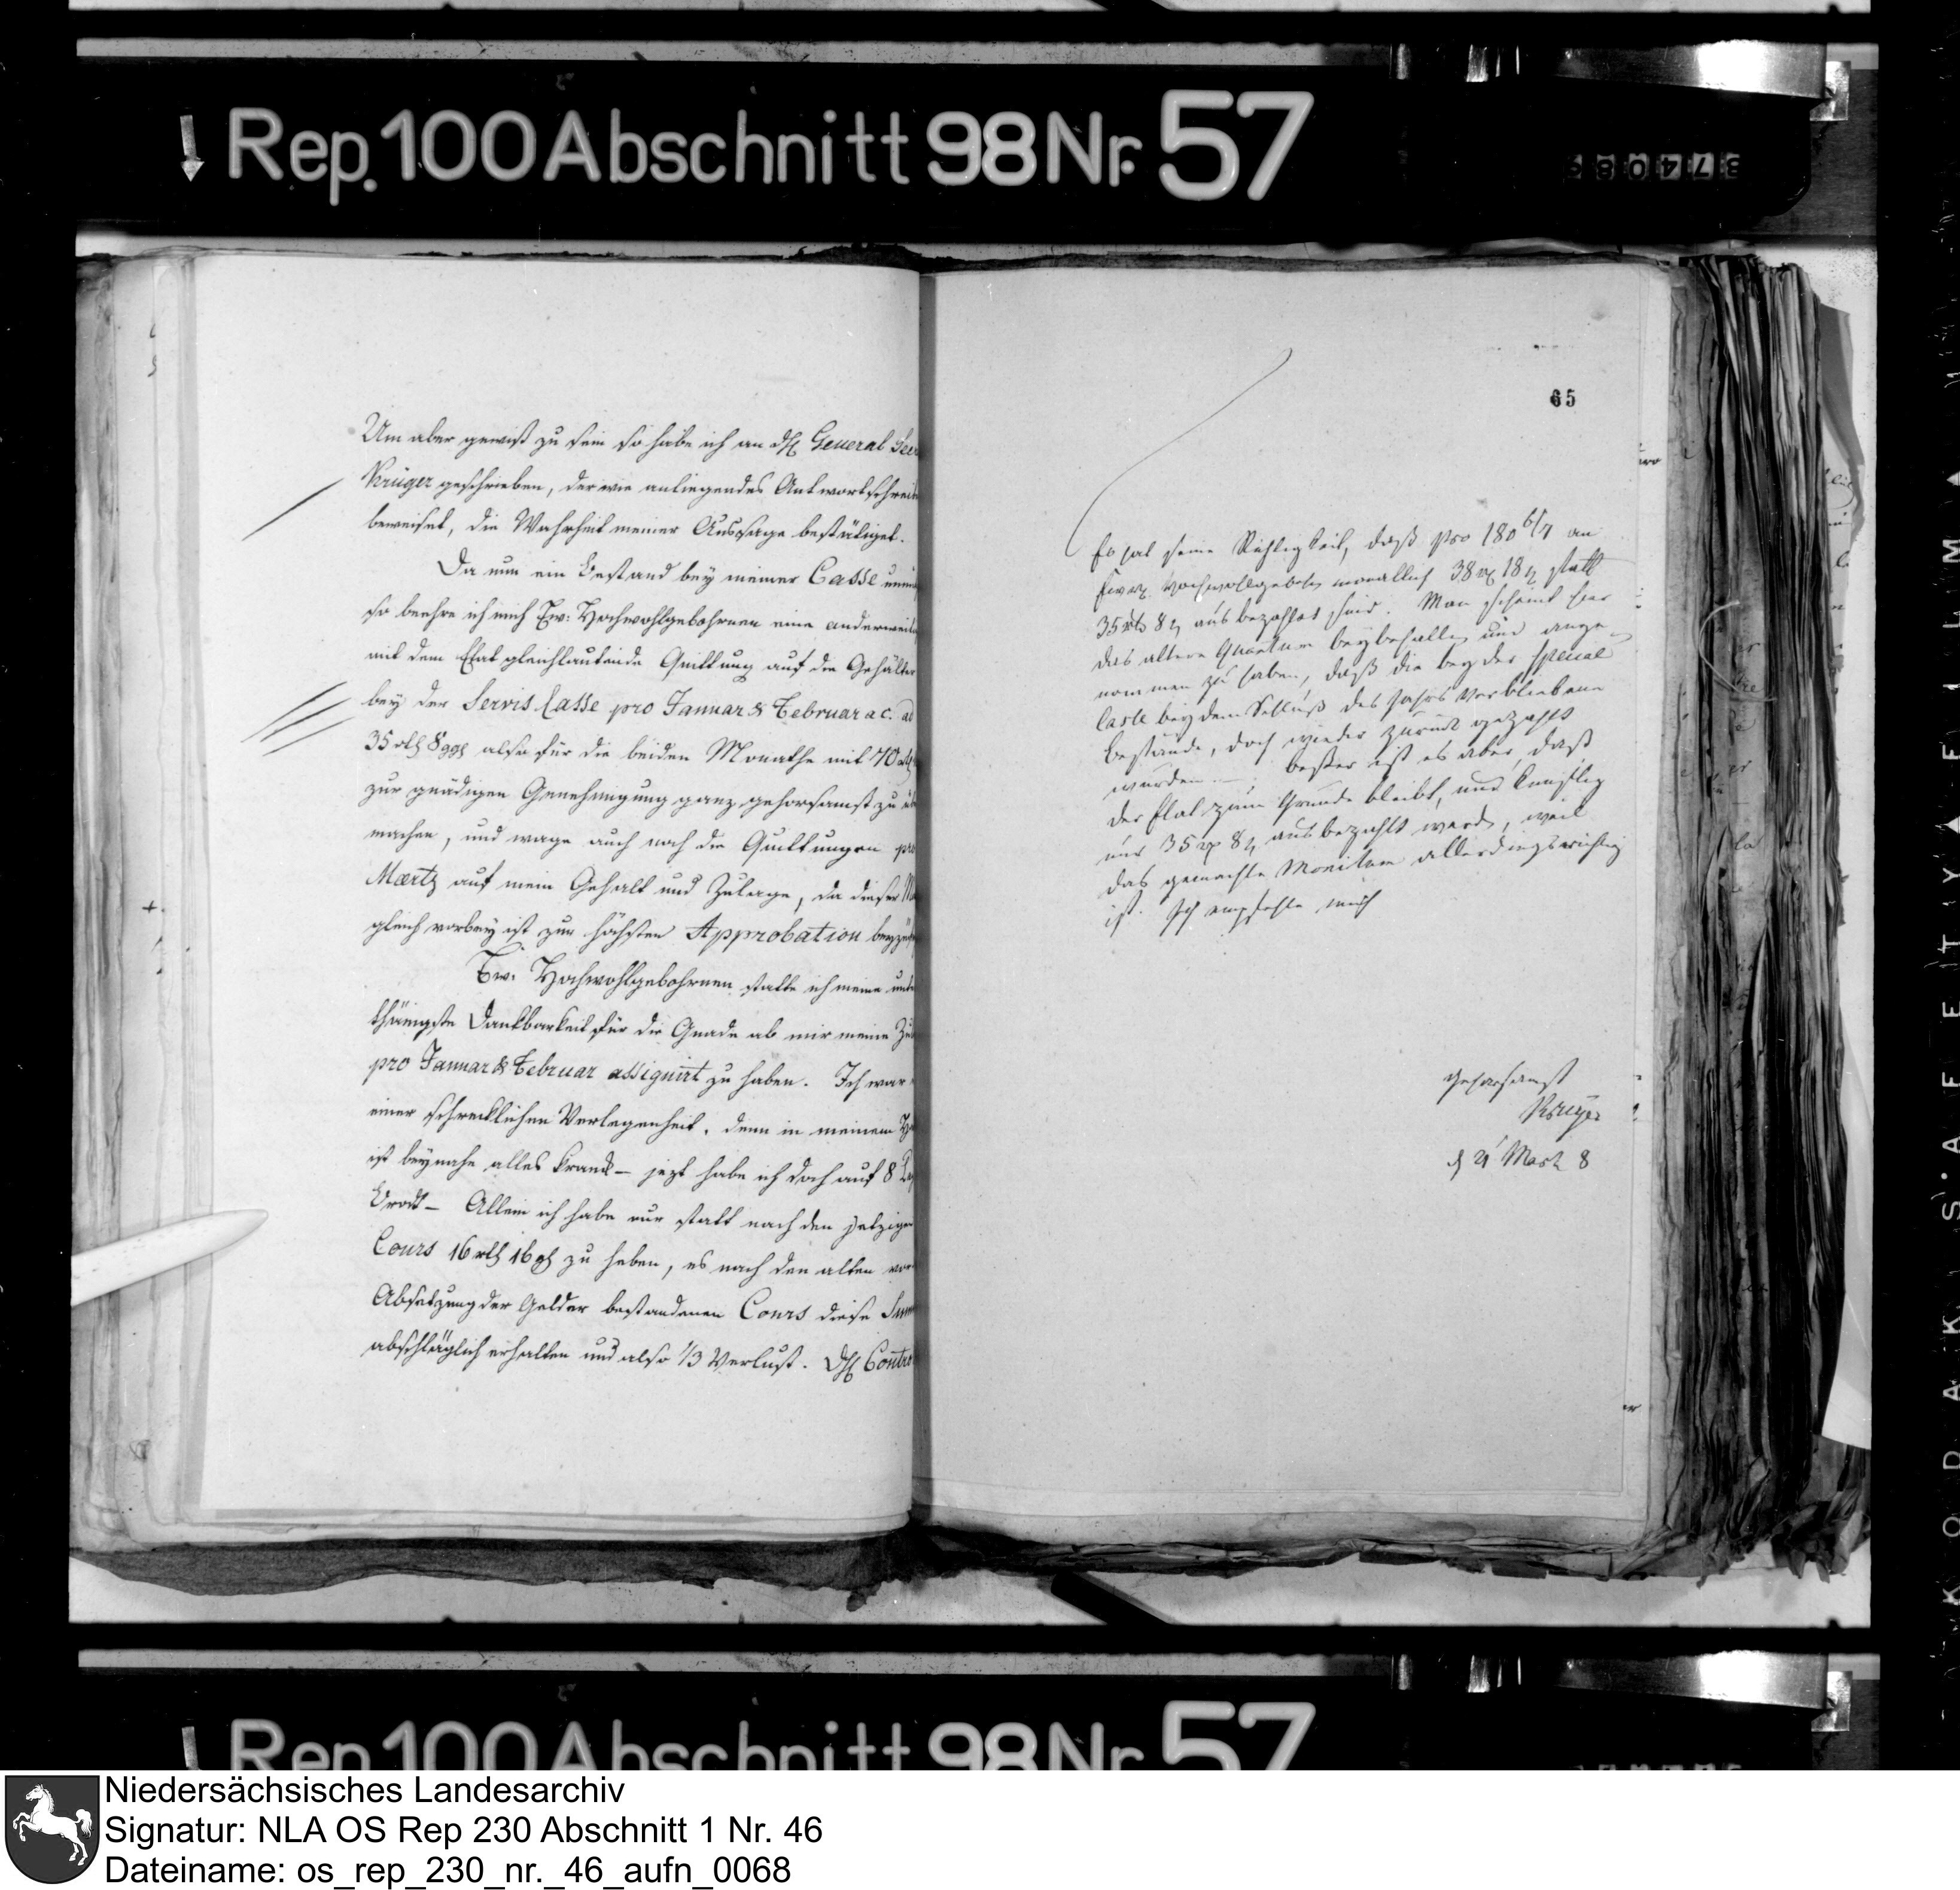 Rep. 100 Abschnitt 98 Nr. 57
Um aber gewiß zu sein so habe ich an dH General
Krüger geschrieben, der wie anliegendes Antwortschrei
beweiset, die Wahrheit meiner Aussage bestätiget.
Da nun ein Bestand bey meiner Casse
so beehre ich mich Ew: Hochwohlgebohrnen eine anderweit
mit dem Etat gleichlautende Quittung auf die Gehälter
bey der Servis Casse pro Januar & Februar a c. ad
35 rth 8 ggl also für die beiden Monathe mit 70 rth
zur gnädigen Genehmigung ganz gehorsamst zu
machen, und wage auch noch die Quittungen pro
Maertz auf mein Gehalt und Zulage, da dieser
gleich vorbey ist zur höchsten Approbation
Ew. Hochwohlgebohrnen statte ich meine unter
thänigste Dankbarkeit für die Gnade ab mir meine
pro Januar & Februar assignirt zu haben. Ich war
einer schrecklichen Verlegenheit, denn in meinem
ist beynahe alles krank – jezt habe ich doch auf 8
Brodt – Allein ich habe nur statt nach den jetzigen
Cours 16 rth 16 gl zu heben, es nach den alten vor
Absetzung der Gelder bestandenen Cours diese
abschläglich erhalten und also 1/3 Verlust. dH Contro
65
Es hat seine Richtigkeit, daß pro 180 6/7 an
Ew. Hochwohlgeb. monatlich 38 rth 18 statt
35 rth 8 ausbezahlet sind. Man scheint hier
das altere Quantum beybehalten und ange
nommen zu haben, daß die bey der Special
Casse bey dem Schluß des Jahrs verbliebene
Bestände, doch wieder zurück gezahlt
wurden. – besser ist es aber, daß
der Etat zum Grunde bleibt, und künftig
nur 35 rth 8 ausbezahlt werde, weil
das gemachte Monitum allerdings richtig
ist. Ich empfehle mich
gehorsamst
Krüger
d 21 Mart 8
Rep. 100 Abschnitt 98 Nr. 57
Niedersächsisches Landesarchiv
Signatur: NLA OS Rep 230 Abschnitt 1 Nr. 46
Dateiname: os_rep_230_nr._46_aufn_0068